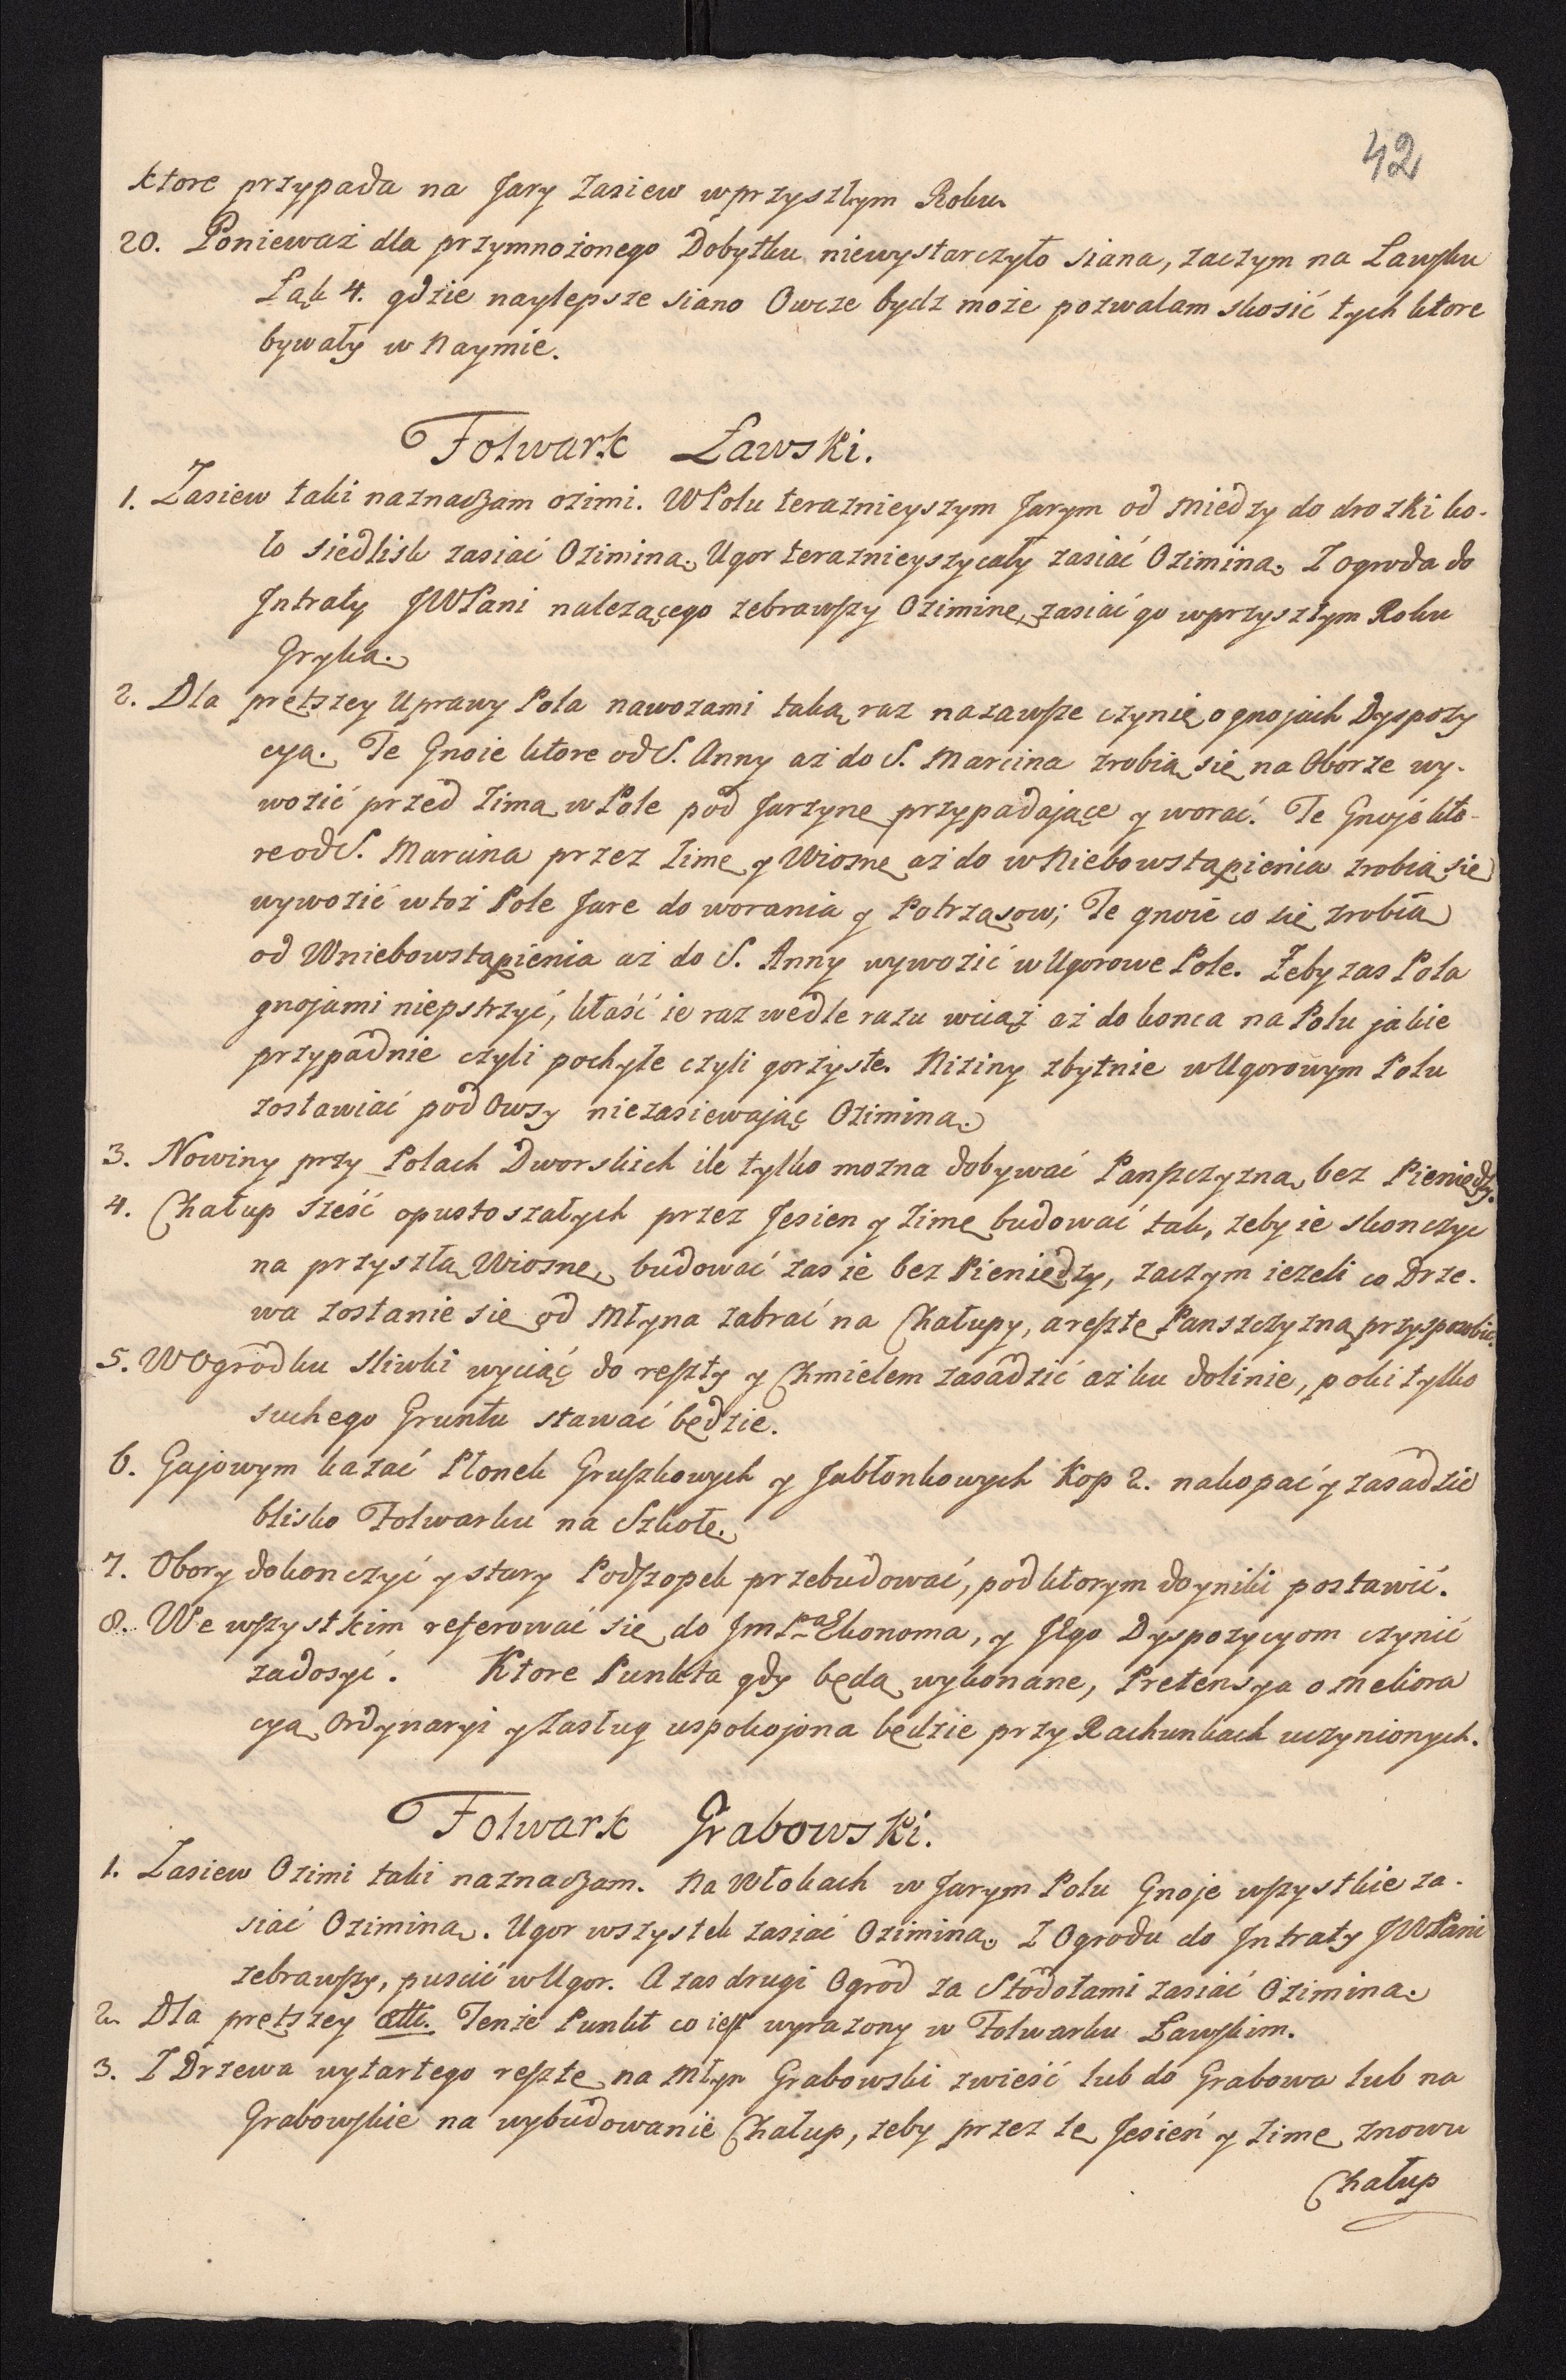 42
ktore przypada na Jary zasiew w przyszłym Roku.
20. Ponieważ dla przymnożonego Dobytku niewystarczyło siana, zaczym na Ławsku
Łąk 4. gdzie naylepsze siano Owcze bydz może pozwalam skosić tych ktore
bywały w Naymie.
Folwark Ławski.
1. Zasiew taki naznaczam ozimi. W Polu teraznieyszym Jarym od Miedzy do drozki ko-
ło siedlisk zasiać Oziminą. Ugor teraznieyszy cały zasiać Oziminą. Z ogroda do
Intraty JWPani nalezącego zebrawszy Ozimine, zasiać go w przyszłym Roku
Gryką.
2. Dla prętszey Uprawy Pola nawozami taką raz nazawsze czynię o gnojach Dyspozy
cyą. Te Gnoie ktore od S. Anny aż do S. Marcina zrobią się na Oborze wy-
wozić przed Zimą w Pole pod Jarzynę przypadające y worać. Te Gnoje kto-
re od S. Marcina przez Zimę y Wiosnę aż do wNiebowstąpienia zrobią się
wywozić w toż Pole Jare do worania y Potrząsow; Te gnoie co się zrobią
od Wniebowstąpienia aż do S. Anny wywozić w Ugorowe Pole. Żeby zas Pola
gnojami niepstrzyć, kłaść ie raz wedle razu wciąż aż do konca na Polu jakie
przypadnie czyli pochyłe czyli gorzyste. Niziny zbytnie w Ugorowym Polu
zostawiać pod Owsy niezasiewając Oziminą.
3. Nowiny przy Polach Dworskich ile tylko mozna dobywać Panszczyzną, bez Pieniędzy.
4. Chałup sześć opustoszałych przez Jesien y Zimę budować tak, zeby ie skonczyc
na przyszłą Wiosnę, budować zas ie bez Pieniędzy, zaczym iezeli co Drze-
wa zostanie się od Młyna zabrać na Chałupy, a resztę Panszczyzną przysposobic.
5. W Ogrodku sliwki wyciąć do reszty y Chmielem zasadzić aż ku dolinie, poki tylko
suchego Gruntu stawać będzie.
6. Gajowym kazać Płonek Gruszkowych y Jabłonkowych Kop 2. nakopać y zasadzić
blisko Folwarku na Szkołę.
7. Obory dokonczyć y stary Podszopek przebudować, pod ktorym doyniki postawić.
8. We wszystkim referować się do JmPa Ekonoma, y Jego Dyspozycyom czynić
zadosyć. Ktore Punkta gdy będą wykonane, Pretensya o meliora
cyą Ordynaryi y Zasług uspokojona będzie przy Rachunkach uczynionych.
Folwark Grabowski.
1. Zasiew Ozimi taki naznaczam. Na Włokach w Jarym Polu Gnoje wszystkie za-
siać Oziminą. Ugor wszystek zasiać Oziminą. Z Ogrodu do Intraty JWPani
zebrawszy, puscić w Ugor. A zas drugi Ogrod za Stodołami zasiać Oziminą.
2. Dla prętszey ettc. Tenże Punkt co iest wyrazony w Folwarku Ławskim.
3. Z Drzewa wytartego resztę na Młyn Grabowski zwieść lub do Grabowa lub na
Grabowskie na wybudowanie Chałup, zeby przez tę Jesień y Zimę znowu
Chałup